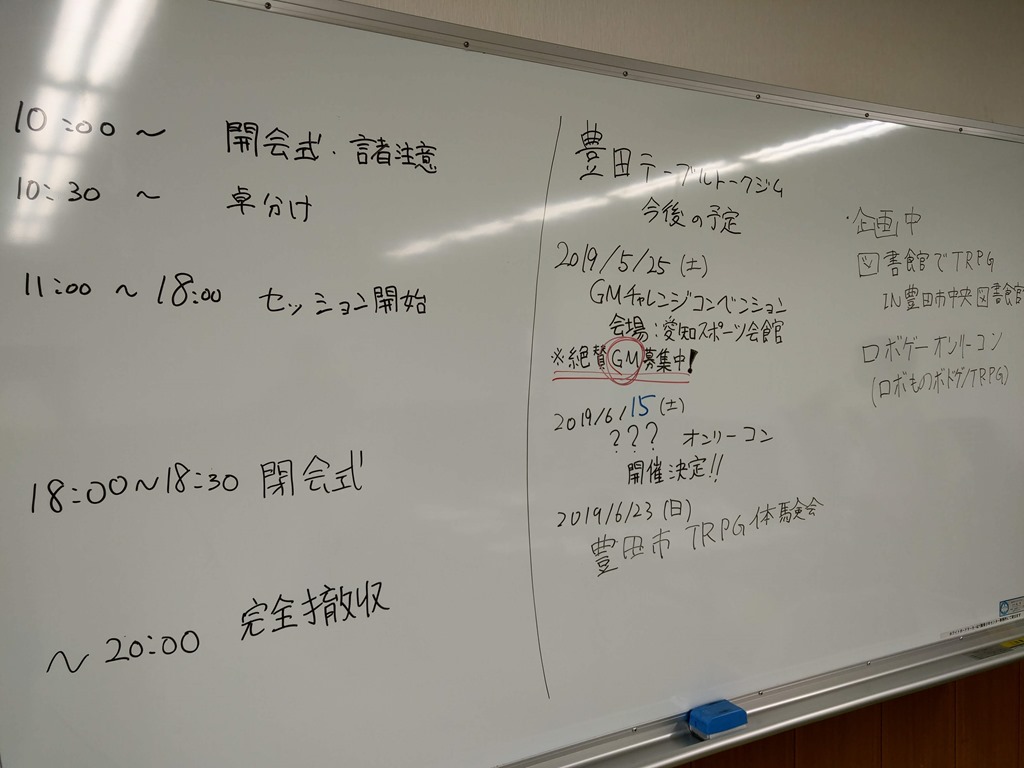 10:00 ~ 開会式・諸注意
10:30 ~ 卓分け
11:00 ~ 18:00 セッション開始
18:00~18:30 閉会式
~ 20:00 完全撤収
豊田テーブルトークジム
今後の予定
2019/5/25 (土)
GMチャレンジコンベンション
会場:愛知スポーツ会館
※絶賛GM募集中!
2019/6/15 (土)
??? オンリーコン
開催決定!!
2019/6/23 (日)
豊田市 TRPG体験会
・企画中
図書館でTRPG
IN豊田市中央図書館
ロボゲーオンリーコン
(ロボものボドゲ/TRPG)